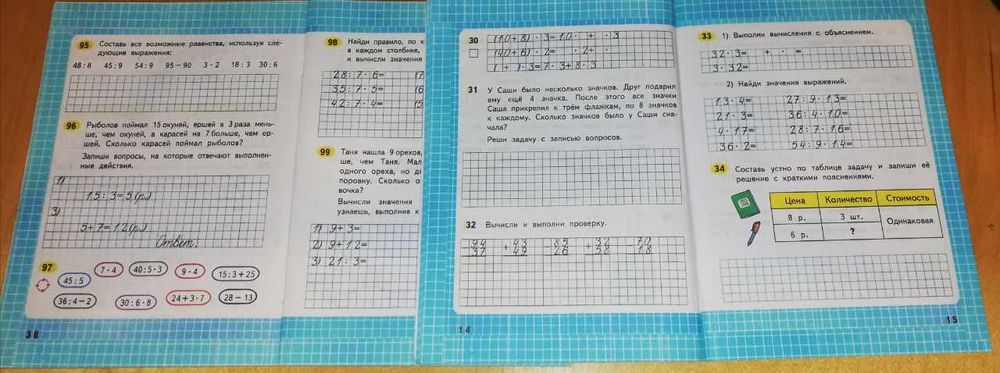 95 Составь все возможные равенства, используя сле-
дующие выражения:
48 : 8 45 : 9 54 : 9 95 − 90 3 · 2 18 : 3 30 : 6
96 Рыболов поймал 15 окуней, ершей в 3 раза мень-
ше, чем окуней, а карасей на 7 больше, чем ер-
шей. Сколько карасей поймал рыболов?
Запиши вопросы, на которые отвечают выполнен-
ные действия.
1)
15 : 3 = 5 (р.)
3)
5 + 7 = 12 (р.)
Ответ:
97
45 : 5 7 · 4 40 : 5 · 3 9 · 4 15 : 3 + 25
36 : 4 − 2 30 : 6 · 8 24 + 3 · 7 28 − 13
38
98 Найди правило, по к
в каждом столбике,
и вычисли значения
28 : 7 · 6 = (7
35 : 7 · 5 = (6
42 : 7 · 4 = (5
99 Таня нашла 9 орехов,
ше, чем Таня. Мал
одного ореха, но д
поровну. Сколько о
вочка?
Вычисли значения
узнаешь, выполнив к
1) 9 + 3 =
2) 9 + 12 =
3) 21 : 3 =
30 (10 + 8) · 3 = 10 · + · 3
(40 + 6) · 2 = · 2 + ·
( + ) · 3 = 7 · 3 + 8 · 3
31 У Саши было несколько значков. Друг подарил
ему ещё 4 значка. После этого все значки
Саша прикрепил к трём флажкам, по 8 значков
к каждому. Сколько значков было у Саши сна-
чала?
Реши задачу с записью вопросов.
32 Вычисли и выполни проверку.
94 + 43 85 + 32 70
37 49 26 58 18
14
33 1) Выполни вычисления с объяснением.
32 · 3 = + · =
3 · 32 =
2) Найди значения выражений.
13 · 4 = 27 : 9 · 13 =
21 · 3 = 36 : 4 · 10 =
4 · 17 = 28 : 7 · 16 =
36 · 2 = 54 : 9 · 14 =
34 Составь устно по таблице задачу и запиши её
решение с краткими пояснениями.
Цена Количество Стоимость
8 р. 3 шт. Одинаковая
6 р. ?
15